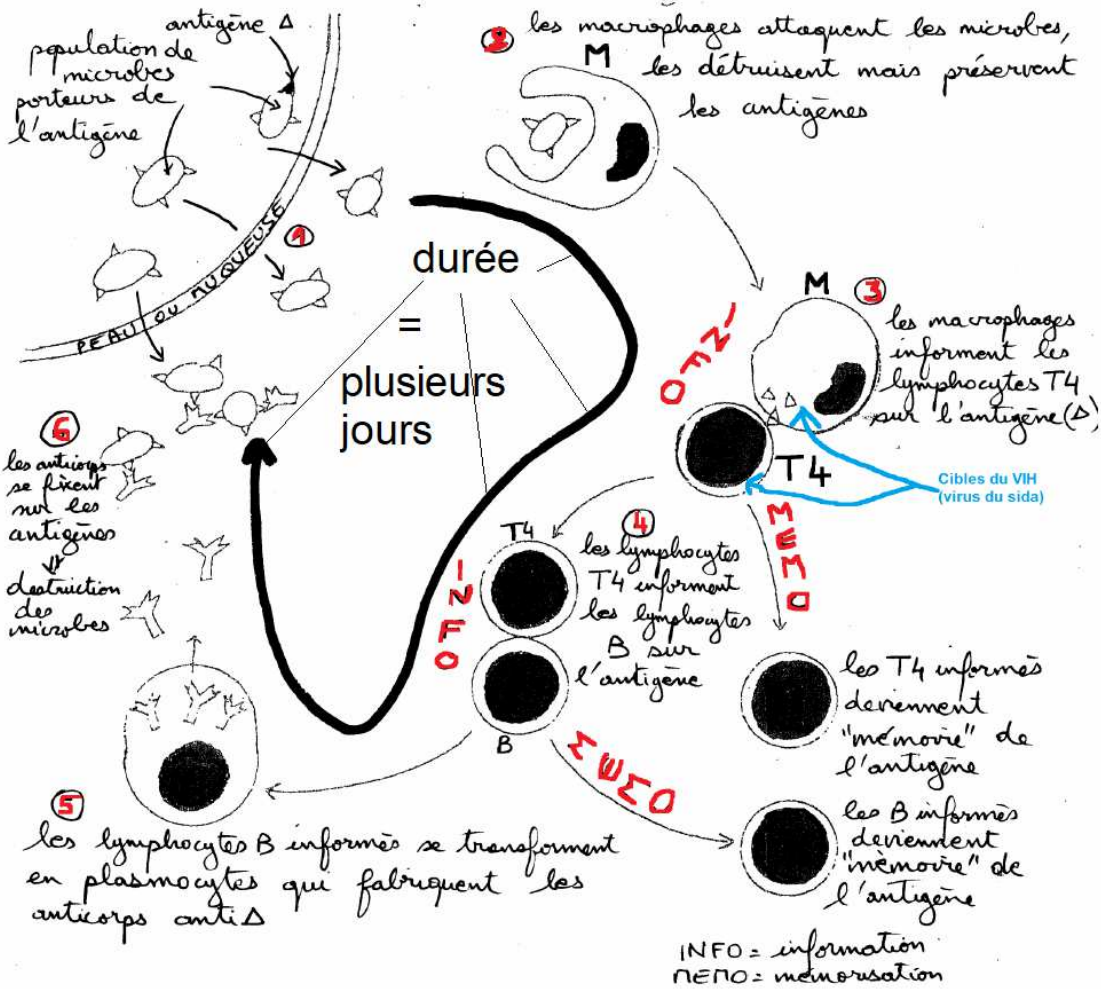 antigène Δ
population de
microbes
porteurs de
l'antigène
PEAU OU MUQUEUSE
1
2 les macrophages attaquent les microbes,
M
les détruisent mais préservent
les antigènes
durée
=
plusieurs
jours
INFO
M
3
les macrophages
informent les
lymphocytes T4
sur l'antigène (Δ)
T4
Cibles du VIH
(virus du sida)
MEMO
INFO
T4
B
4
les lymphocytes
T4 informent
les lymphocytes
B sur
l'antigène
MEMO
les T4 informés
deviennent
"mémoire" de
l'antigène
les B informés
deviennent
"mémoire" de
l'antigène
5
les lymphocytes B informés se transforment
en plasmocytes qui fabriquent les
anticorps anti Δ
6
les anticorps
se fixent
sur les
antigènes
⇓
destruction
des
microbes
INFO = information
MEMO = mémorisation